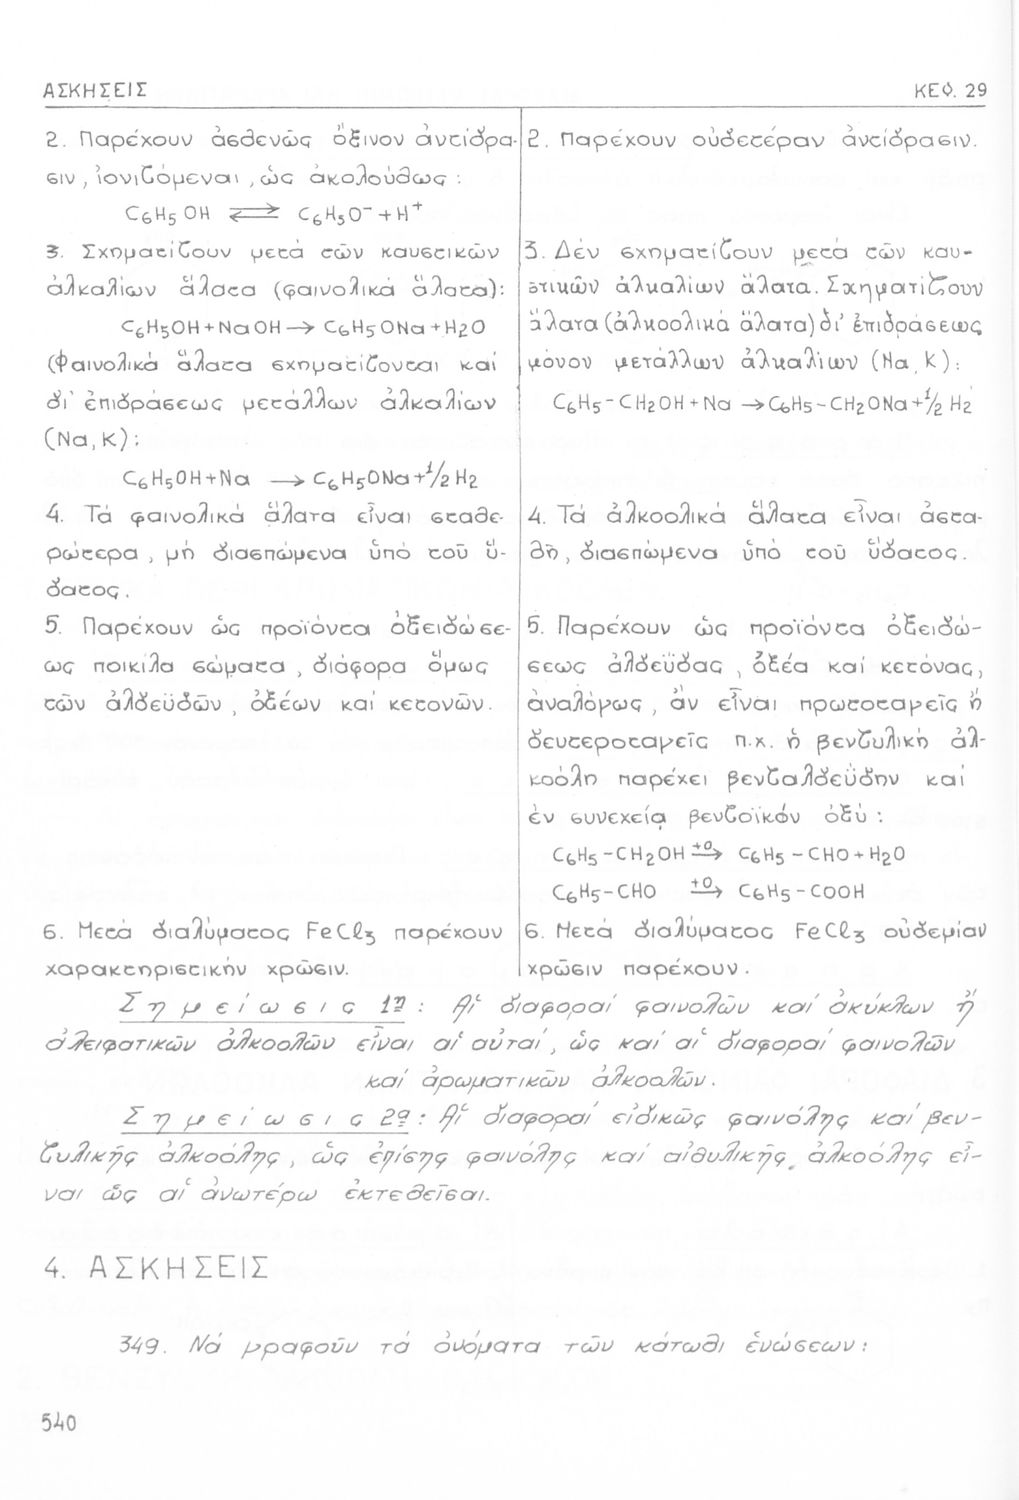 ΑΣΚΗΣΕΙΣ
ΚΕΦ. 29
2. Παρέχουν ἀσθενῶς ὄξινον ἀντίδρα-
σιν, ἰονιζόμεναι, ὡς ἀκολούθως:
C₆H₅OH ⇌ C₆H₅O⁻ + H⁺
3. Σχηματίζουν μετά τῶν καυστικῶν
ἀλκαλίων ἅλατα (φαινολικά ἅλατα):
C₆H₅OH + NaOH → C₆H₅ONa + H₂O
(Φαινολικά ἅλατα σχηματίζονται καί
δι' ἐπιδράσεως μετάλλων ἀλκαλίων
(Na, K):
C₆H₅OH + Na → C₆H₅ONa + 1/2 H₂
4. Τά φαινολικά ἅλατα εἶναι σταθε-
ρώτερα, μή διασπώμενα ὑπό τοῦ ὕ-
δατος.
5. Παρέχουν ὡς προϊόντα ὀξειδώσε-
ως ποικίλα σώματα, διάφορα ὅμως
τῶν ἀλδεϋδῶν, ὀξέων καί κετονῶν.
6. Μετά διαλύματος FeCl₃ παρέχουν
χαρακτηριστικήν χρῶσιν.
2. Παρέχουν οὐδετέραν ἀντίδρασιν.
3. Δέν σχηματίζουν μετά τῶν καυ-
στικῶν ἀλκαλίων ἅλατα. Σχηματίζουν
ἅλατα (ἀλκοολικά ἅλατα) δι' ἐπιδράσεως
μόνον μετάλλων ἀλκαλίων (Na, K):
C₆H₅-CH₂OH + Na → C₆H₅-CH₂ONa + 1/2 H₂
4. Τά ἀλκοολικά ἅλατα εἶναι ἀστα-
θῆ, διασπώμενα ὑπό τοῦ ὕδατος.
5. Παρέχουν ὡς προϊόντα ὀξειδώ-
σεως ἀλδεΰδας, ὀξέα καί κετόνας,
ἀναλόγως, ἄν εἶναι πρωτοταγεῖς ἤ
δευτεροταγεῖς π.χ. ἡ βενζυλική ἀλ-
κοόλη παρέχει βενζαλδεΰδην καί
ἐν συνεχείᾳ βενζοϊκόν ὀξύ:
C₆H₅-CH₂OH +O→ C₆H₅-CHO + H₂O
C₆H₅-CHO +O→ C₆H₅-COOH
6. Μετά διαλύματος FeCl₃ οὐδεμίαν
χρῶσιν παρέχουν.
Σημείωσις 1η: Αἱ διαφοραί φαινολῶν καί ἀκύκλων ἤ
ἀλειφατικῶν ἀλκοολῶν εἶναι αἱ αὐταί, ὡς καί αἱ διαφοραί φαινολῶν
καί ἀρωματικῶν ἀλκοολῶν.
Σημείωσις 2α: Αἱ διαφοραί εἰδικῶς φαινόλης καί βεν-
ζυλικῆς ἀλκοόλης, ὡς ἐπίσης φαινόλης καί αἰθυλικῆς ἀλκοόλης εἶ-
ναι ὡς αἱ ἀνωτέρω ἐκτεθεῖσαι.
4. ΑΣΚΗΣΕΙΣ
349. Νά γραφοῦν τά ὀνόματα τῶν κάτωθι ἑνώσεων:
540